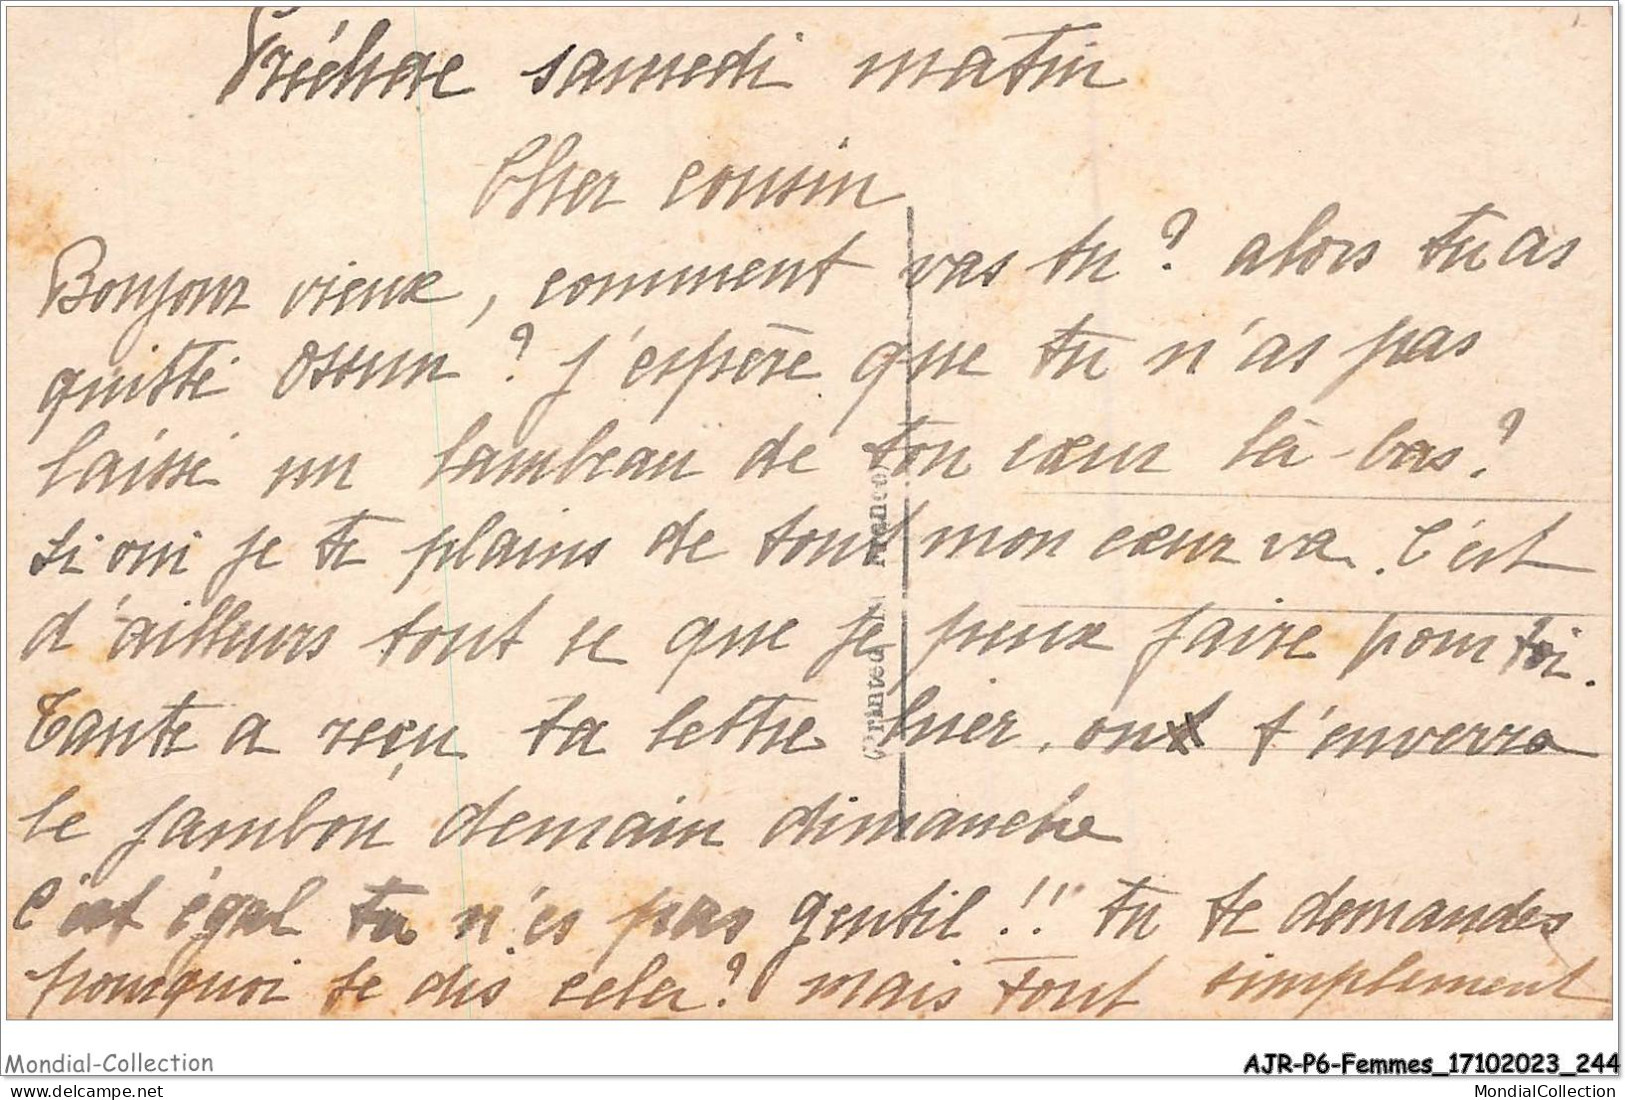 Préchac samedi matin
Cher cousin
Bonjour vieux, comment vas tu ? alors tu as
quitté Ossun ? J'espère que tu n'as pas
laissé un lambeau de ton cœur là-bas ?
si oui je te plains de tout mon cœur va. C'est
d'ailleurs tout ce que je peux faire pour toi.
Tante a reçu ta lettre hier, on t'enverra
le jambon demain dimanche
C'est égal tu n'es pas gentil !!! tu te demandes
pourquoi je dis cela ? mais tout simplement
(Printed in France)
Mondial-Collection
AJR-P6-Femmes_17102023_244
delcampe.net
MondialCollection